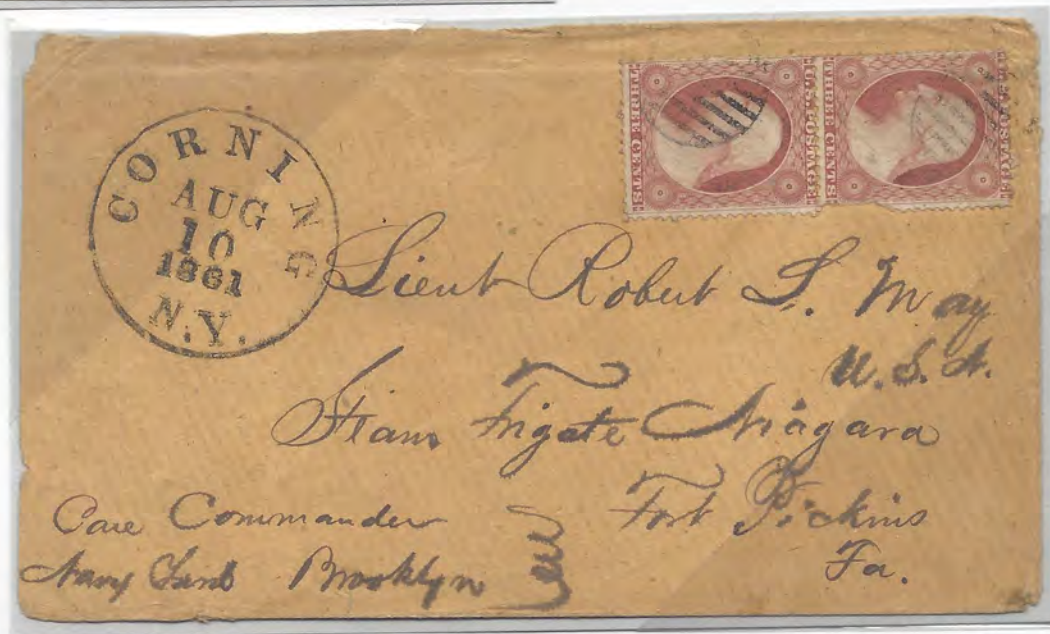 CORNING
AUG
10
1861
N.Y.
THREE CENTS
U.S. POSTAGE
THREE CENTS
U.S. POSTAGE
Lieut Robert L. May
U.S.N.
Steam Frigate Niagara
Fort Pickins
Fa.
Care Commander
Navy Yard Brooklyn